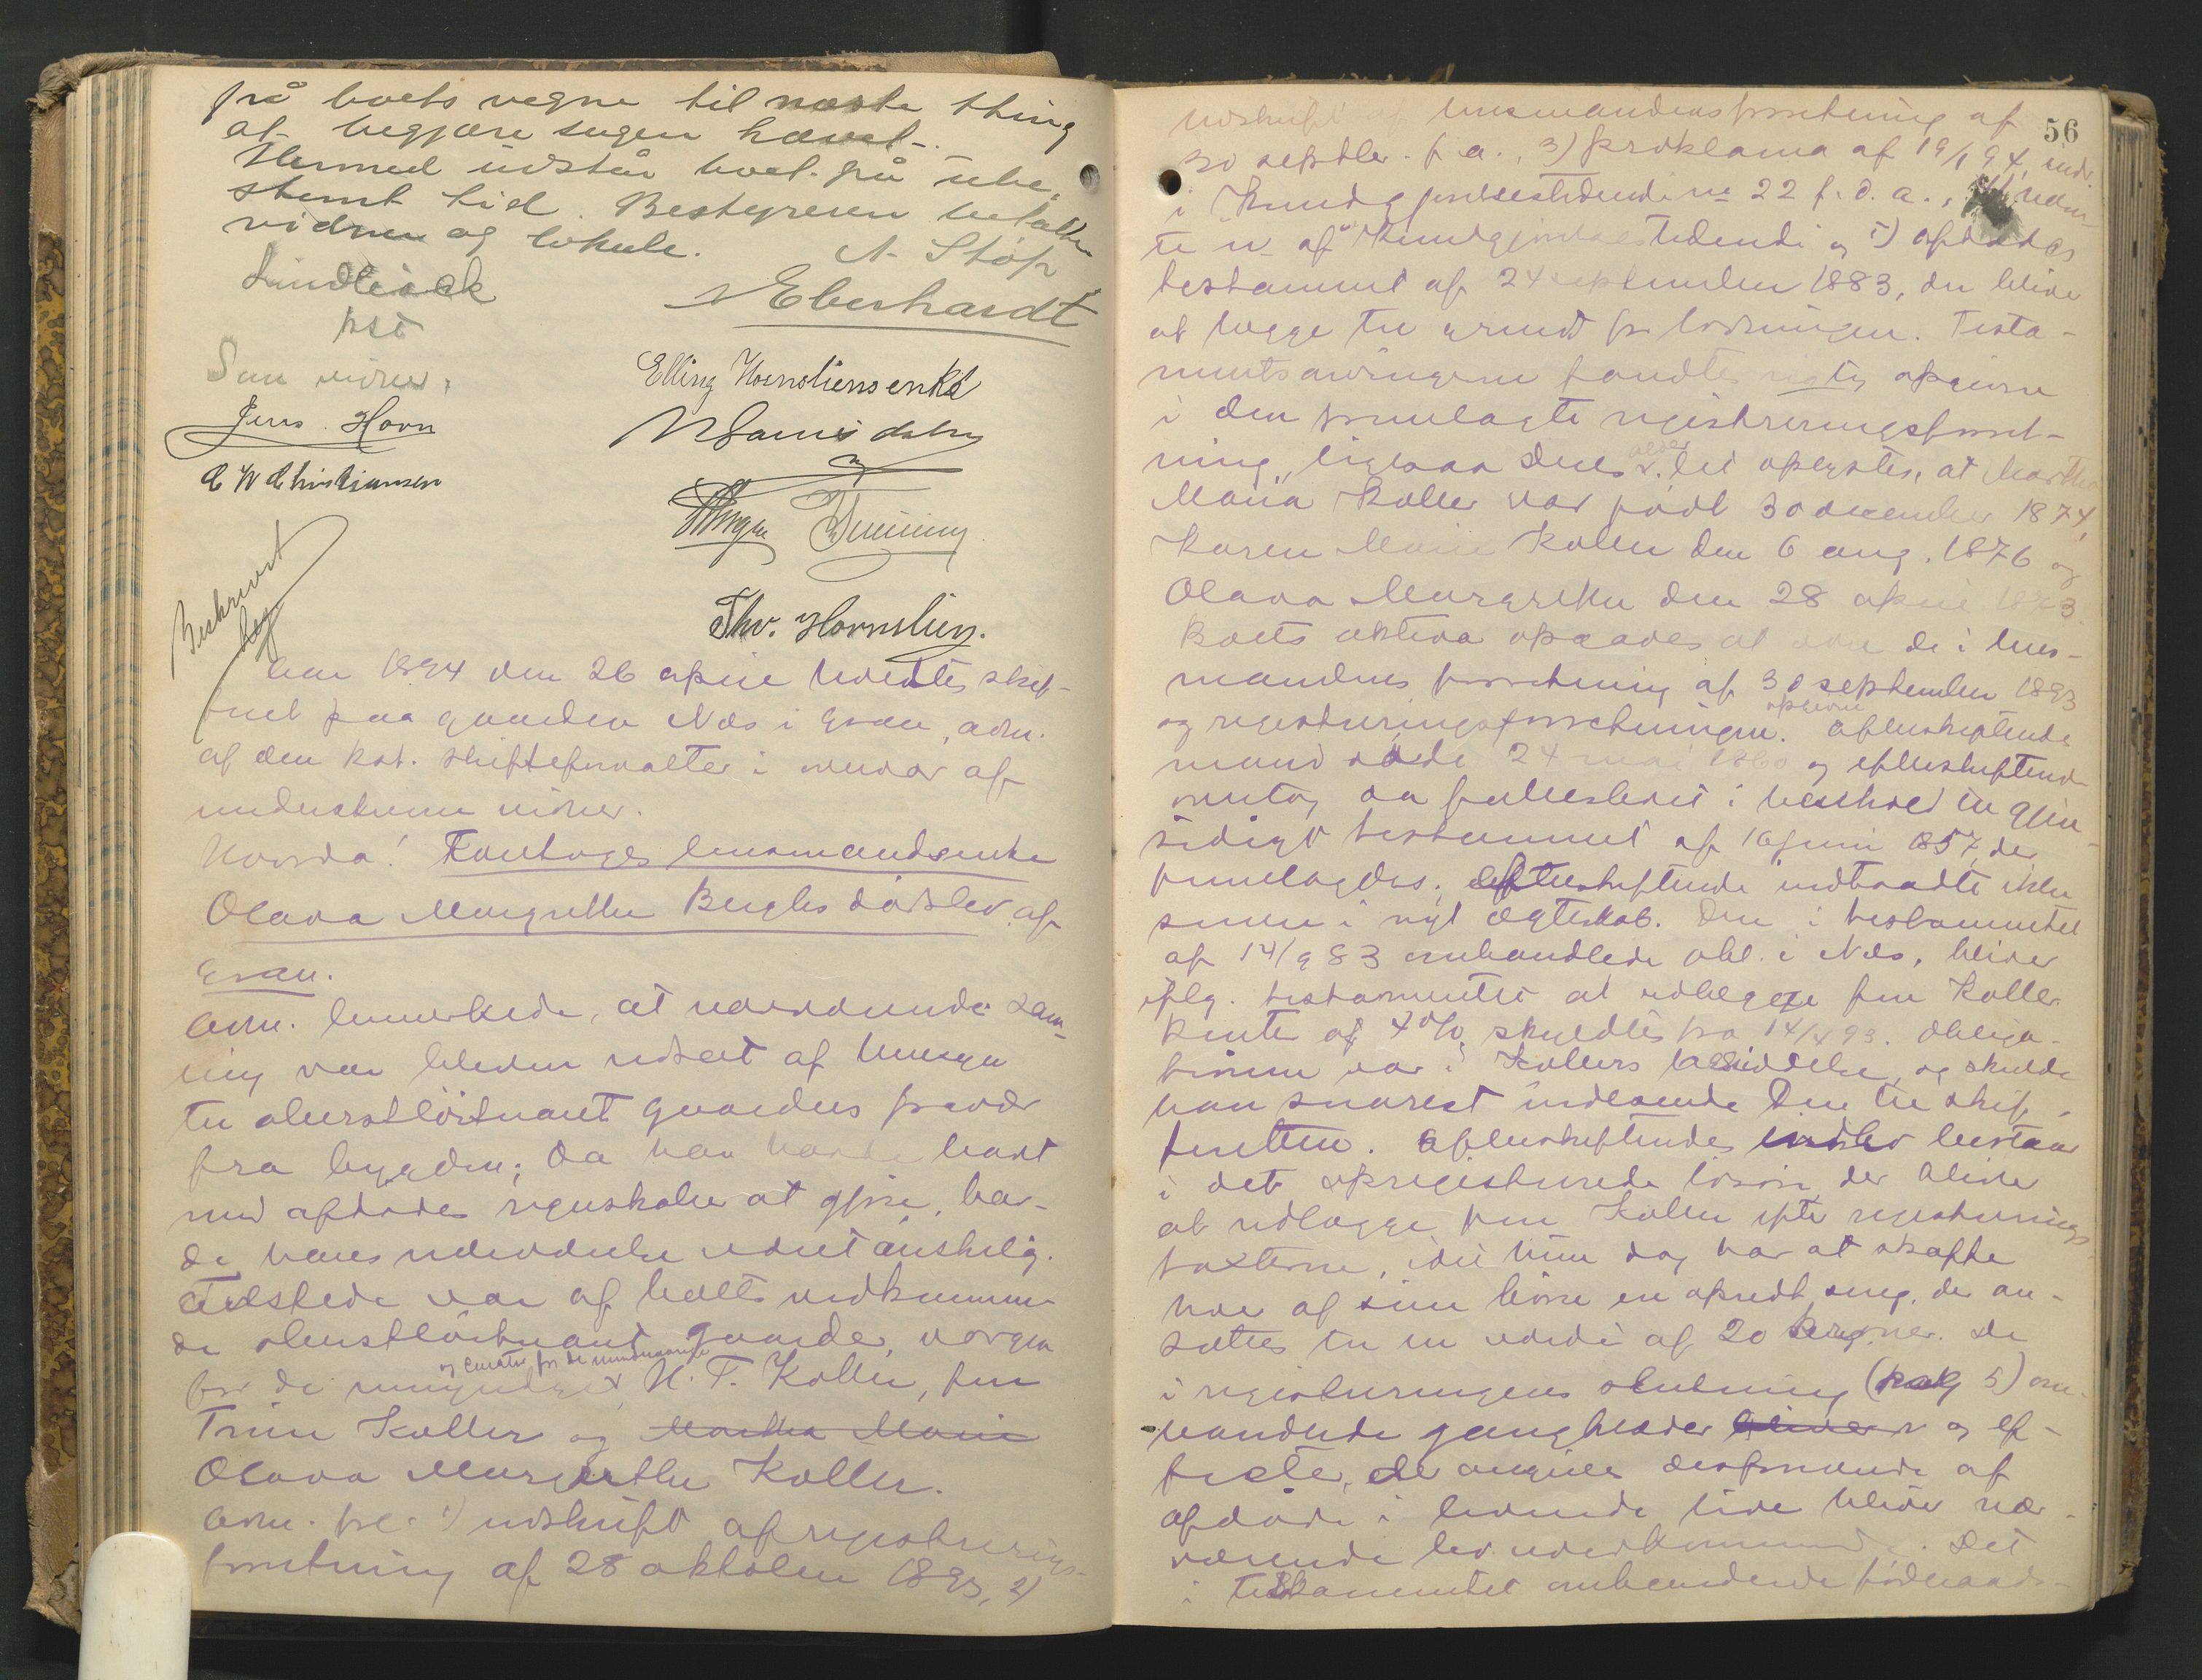 på boets vegne til næste thing
at begjære sagen hævet.
Hermed udstår boet på ube-
stemt tid. Bestyreren betalte
vidner og lokale.
A. Støp
Lindbäck
Eberhardt
Som vidner:
Elling Hornsliens enke
Jens Hovn
C W Christiansen
Thv. Hornslien.
Beskrevet
Aar 1894 den 26 april holdtes skif-
teret paa gaarden Næs i Gran, adm.
af den kst. skifteforvalter i overvær af
underskrevne vidner.
Hvorda! Foretoges lensmandsenke
Olava Margrethe Berghs dødsbo af
Gran.
Adm. bemerkede, at nærværende sam-
ling var bleven udsat af hensyn
til oberstløitnant Gaarders fravær
fra bygden; da han havde havt
med afdødes regnskaber at gjøre, hav-
de hans nærværelse været ønskelig.
Tilstede var af boets vedkommen-
de oberstløitnant Gaarder, værgen
og curator for de mindreaarige
for de umyndige H. T. Koller, fru
Trine Koller og Martha Marie
Olava Margrethe Koller.
Adm. frl. 1) udskrift af registrerings-
forretning af 28 oktober 1893, 2)
56
udskrift af lensmandensforretning af
30 septbr. f. a., 3) proklama af 19/1 94, indr.
i Kundgjørelsestidende no 22 f. d. a.,
te no af Kundgjørelsestidende og 5) afdødes
testament af 24 september 1883, der bliver
at lægge til grund for lodningen. Testa-
mentsarvingerne fandtes rigtig opgivne
i den fremlagte registreringsforret-
ning, ligesaa deres alder. Det oplystes, at Martha
Maria Koller var født 30 december 1874,
Karen Marie Koller den 6 aug. 1876 og
Olava Margrethe den 28 april 1873.
Boets aktiva opgaves at være de i lens-
mandens forretning af 30 september 1893
og registreringsforretningen opgivne. Afterskiftende
mand døde 24 mai 1860 og efterskiftende
overtog da fællesboet i henhold til gjen-
sidigt testament af 16 juni 1857, der
fremlagdes. Efterskiftende indtraadte ikke
senere i nyt ægteskab. Den i testamentet
af 14/9 83 omhandlede obl. i Næs, bliver
iflg. testamentet at udlægge fru Koller.
Rente af 4% skyldtes fra 14/4 93. Obliga-
tionen var i Kollers besiddelse, og skulde
han snarest indsende den til skif-
teretten. Afterskiftendes indbo bestaar
i det opregistrerede løsøre, der bliver
at udlægge fru Koller efter registrerings-
taxterne, idet hun dog har at skaffe
hver af sine børn en opredt seng, der an-
sættes til en værdi af 20 kroner. De
i registreringens slutning (pag 5) om-
handlede gangklæder bliver og ef-
fekter, der angives desponerede af
afdøde i levende live bliver nær-
værende bo uvedkommende. Det
i testamentet omhandlede føderaads-